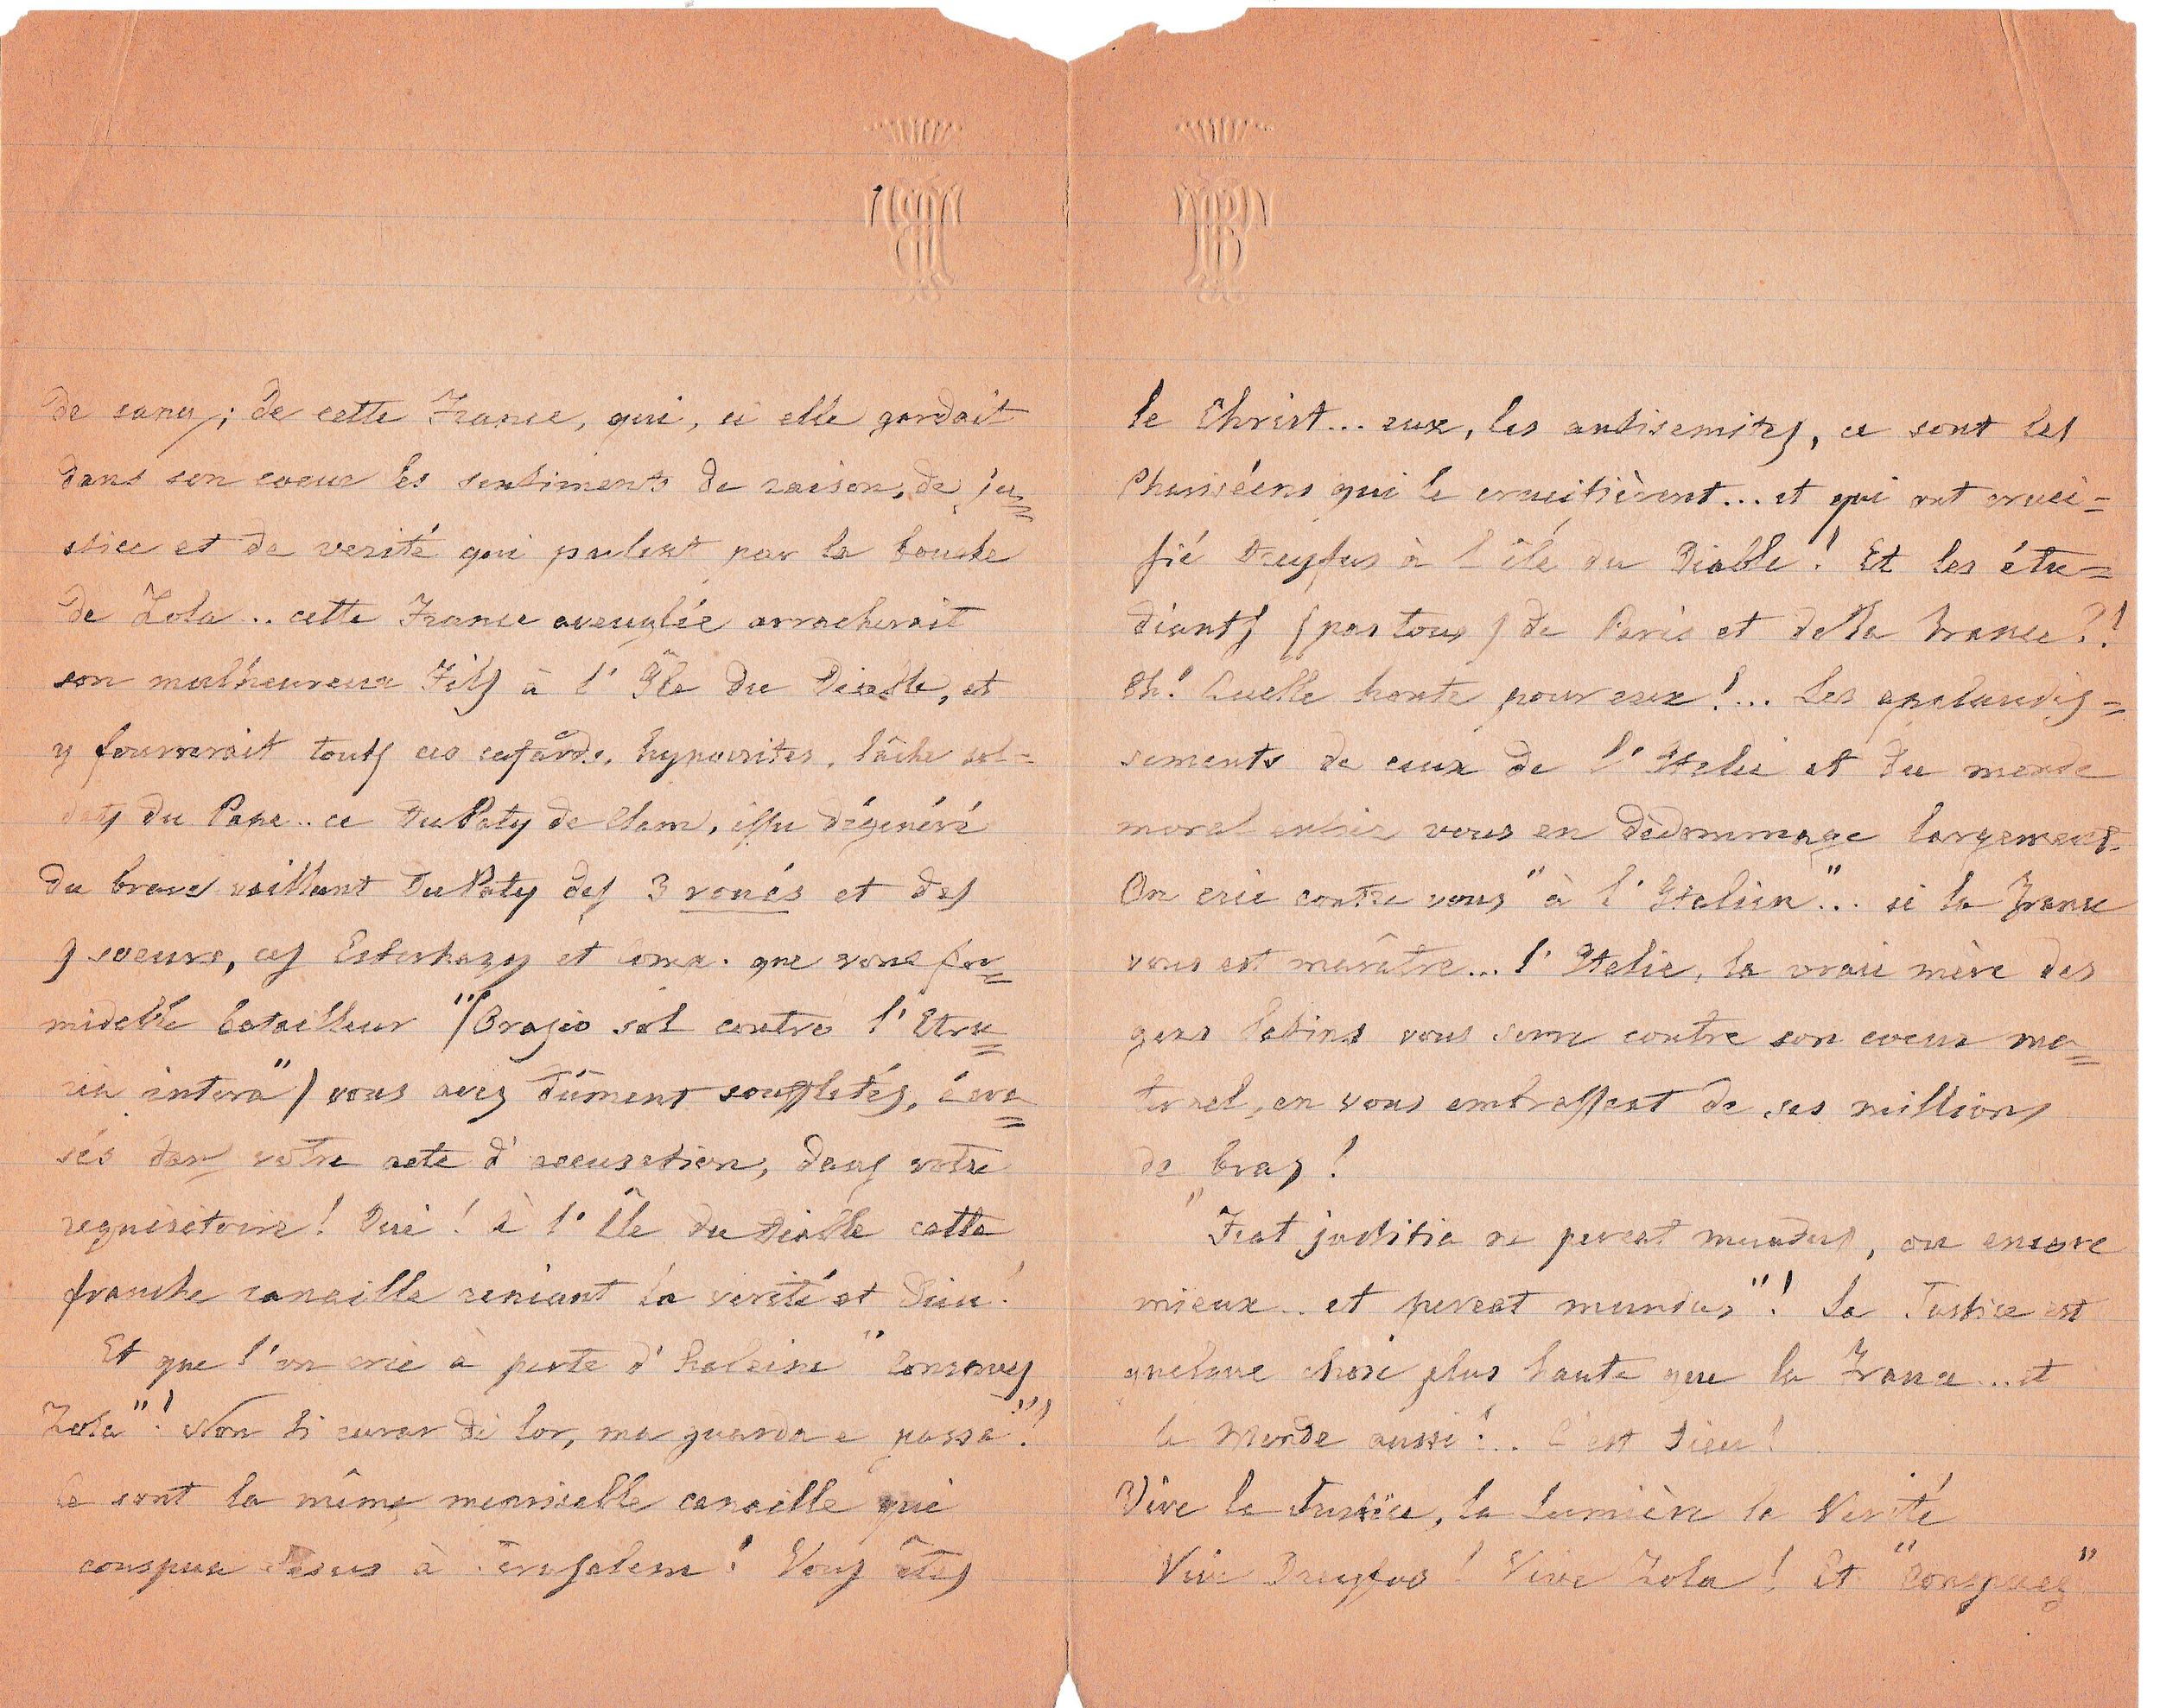 de sang; de cette France, qui, si elle gardait
dans son coeur les sentiments de raison, de ju=
stice et de verité qui parlent par la bouche
de Zola .. cette France aveuglée arracherait
son malheureux Fils à l' Île du Diable, et
y fourrerait touts ces cafards, hypocrites, lâche sol=
dats du Pape .. ce Du Paty de Clam, issu dégénéré
du brave vaillant Du Paty des 3 roués et des
9 soeurs, ces Esterhazy et Comp. que vous for=
midable batailleur "(Orazio sol contro l' Etru=
ria intera") vous avez dûment souffletés, écra=
sés dans votre acte d' accusation, dans votre
requisitoire! Oui! à l' Île du Diable cette
franche canaille reniant la verité et Dieu!
Et que l'on crie à perte d' haleine "Conspuez
Zola"! Non ti curar di lor, ma guarda e passa"!
Ce sont la même méprisable canaille qui
conspua Jesus à Jerusalem! Vous êtes
le Christ... eux, les antisemites, ce sont les
Phariséens qui le crucifièrent... et qui ont cruci=
fié Dreyfus à l' île du Diable! Et les étu=
diants (pas tous) de Paris et della France?!
Eh! Quelle honte pour eux!... Les applaudis=
sements de ceux de l' Italie et du monde
moral entier vous en dèdommage largement.
On crie contre vous "à l' Italien"... si la France
vous est marâtre... l' Italie, la vraie mère des
gens latins vous serre contre son coeur ma=
ternel, en vous embrassant de ses millions
de bras!
"Fiat justitia ne pereat mundus, ou encore
mieux .. et pereat mundus"! La Justice est
quelque chose plus haute que la France... et
le Monde aussi!.. C'est Dieu!
Vive la Justice, la Lumière la Verité
Vive Dreyfus! Vive Zola! Et "Conspuez"